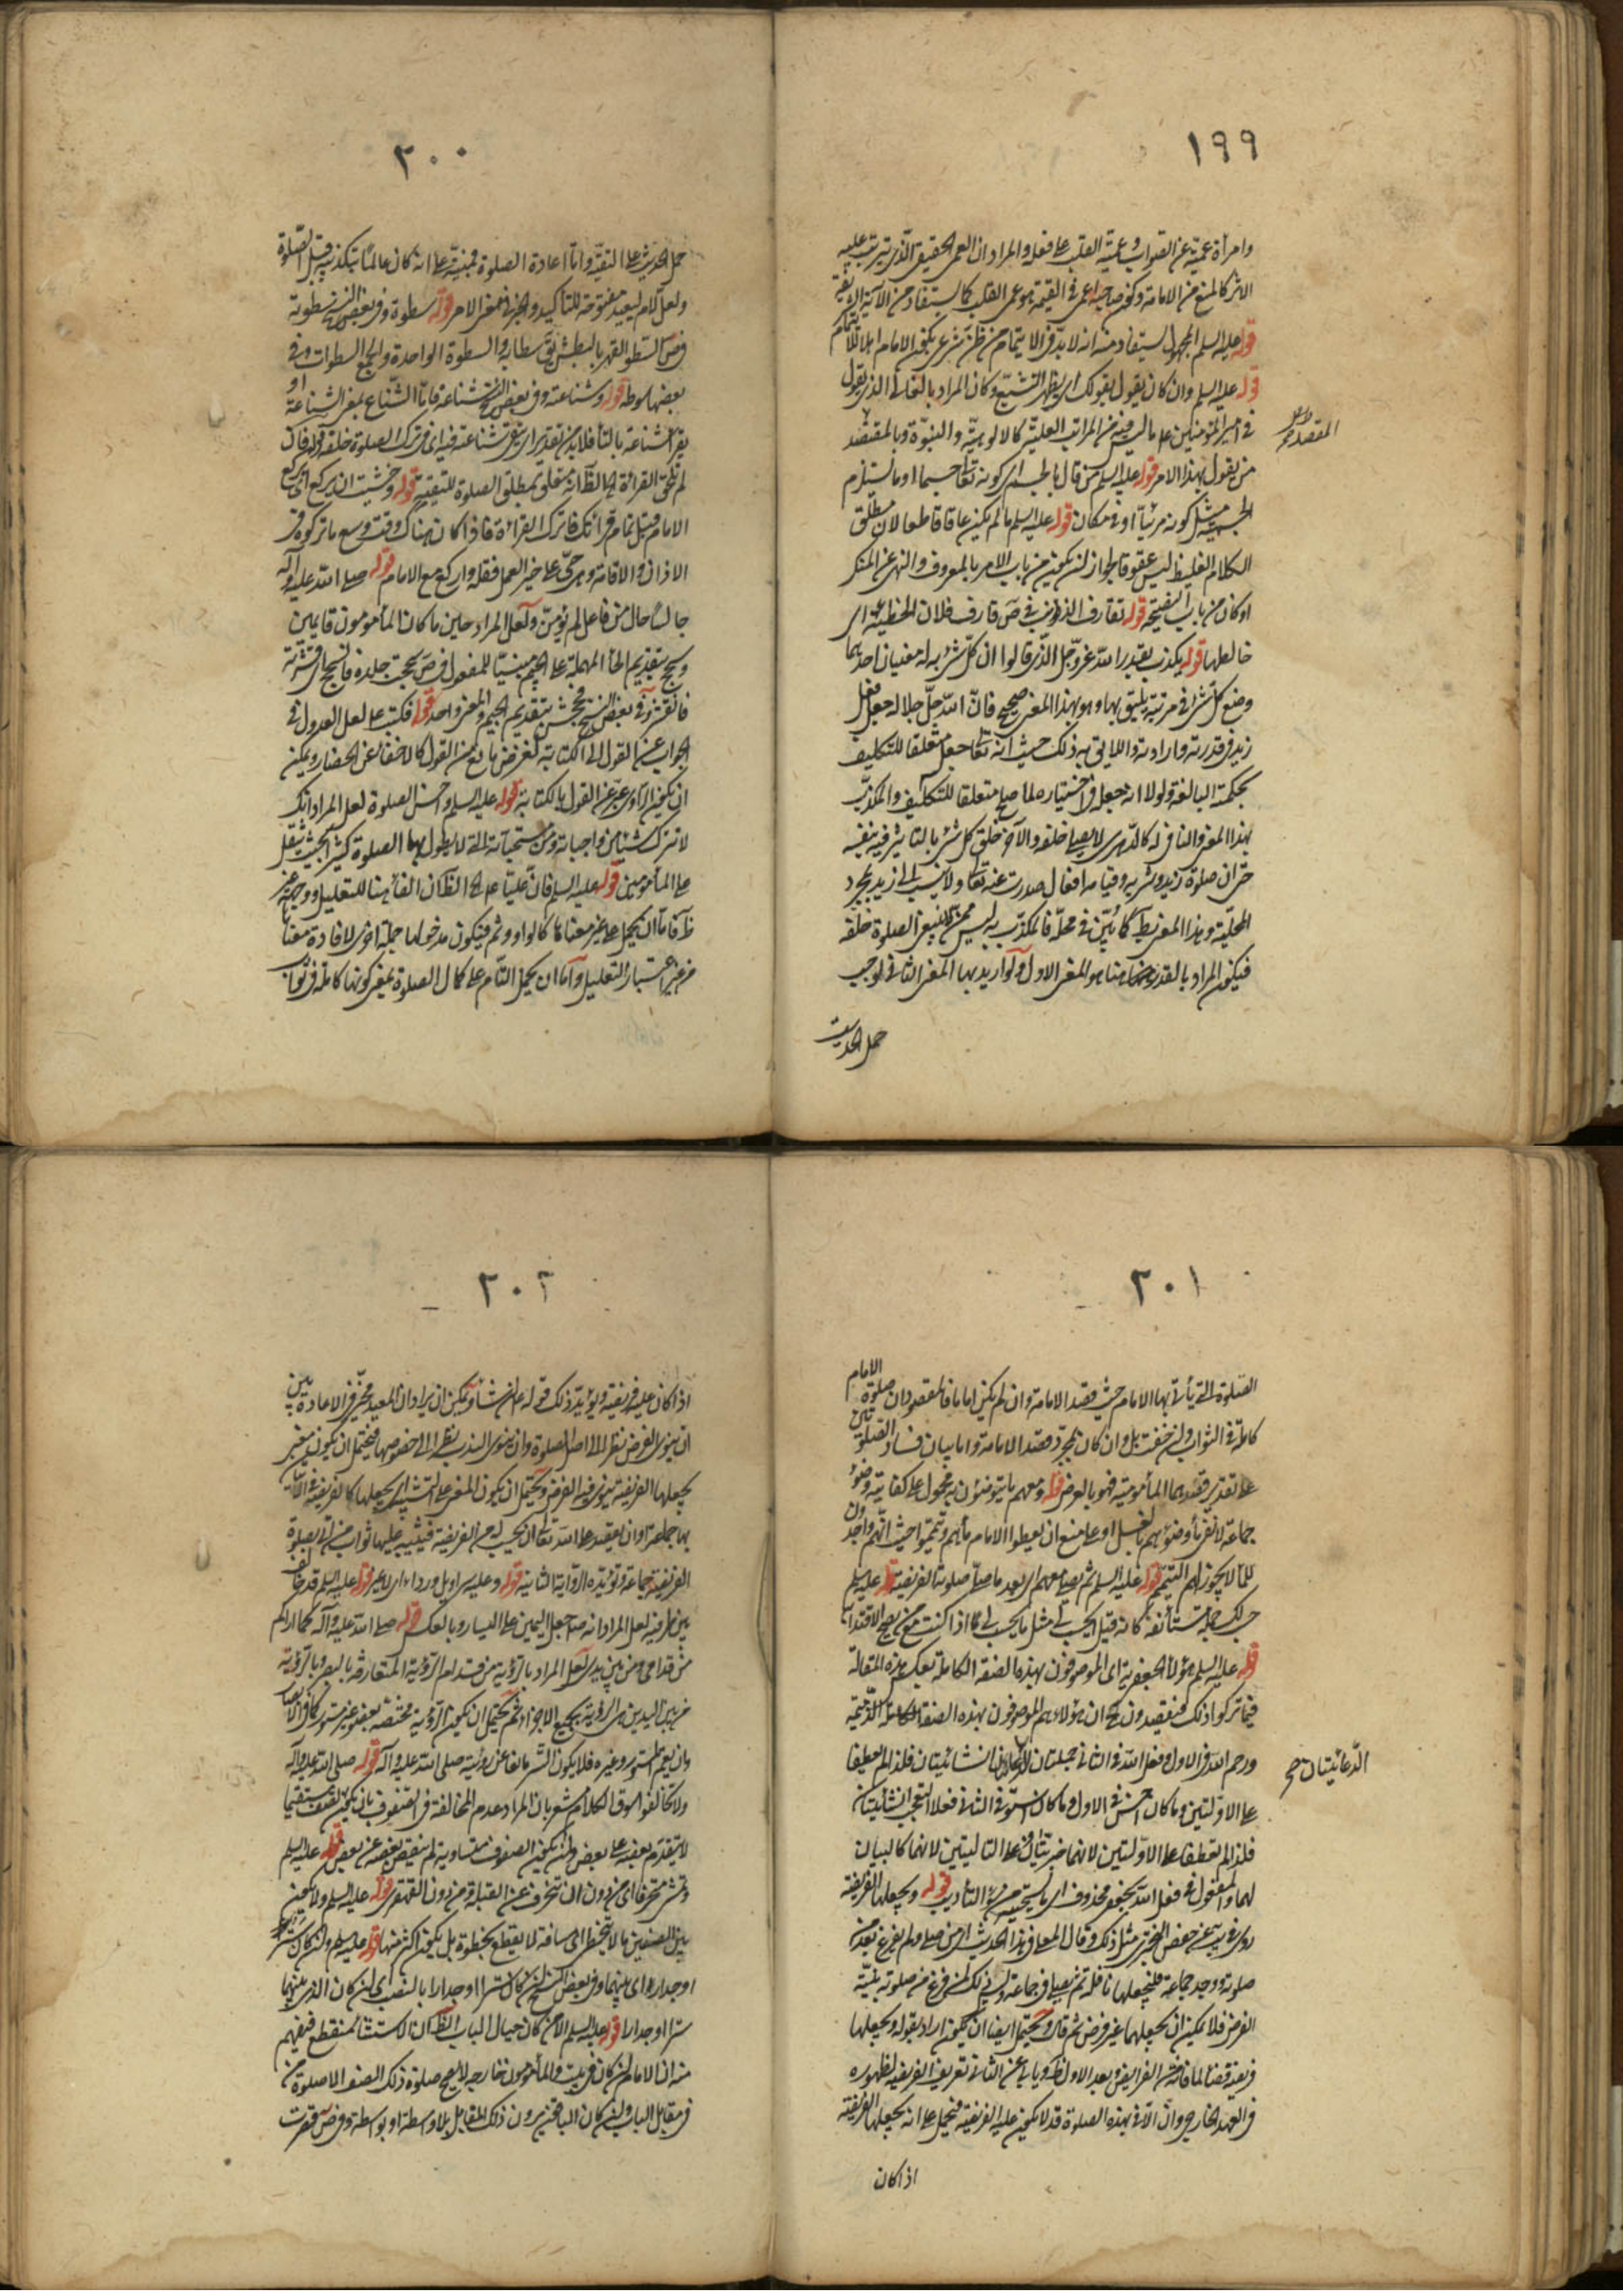 ١٩٩
وامرأة عمية عن الصواب وعمية القلب على فعلة والمراد ان العمى الحقيقي الذي يترتب عليه
الاثر كالمنع من الامامة وكون صاحبه اعمى في القيمة هو عمى القلب كما يستفاد من الآية الشريفة
قوله عليه السلم المجهول يستفاد منه انه لا بد في الايتمام من ظن شرعي بكون الامام اهلا للايتمام
قوله عليه السلم وان كان يقول بقولك اي يظهر التشيع وكان المراد بالغالي الذي يقول
في امير المؤمنين على ما ليس فيه من المراتب العلية كالالوهية والنبوة وبالمقتصد
من يقول بهذا الامر قوله عليه السلم من قال بالجسم اي كونه تعالى جسما او ما يستلزم
الجسمية مثل كونه مرئيا او في مكان قوله عليه السلم ما لم يكن عاقا قاطعا لان مطلق
الكلام الغليظ ليس عقوقا لجواز ان يكون من باب الامر بالمعروف والنهي عن المنكر
او كان من باب النصيحة قوله تقارف الذنوب في ص قارف فلان الخطيئة اي
خالطها قوله يكذب بقدر الله عز وجل الذي قالوا ان كل شئ به له معنيان احدهما
وضع كل شئ في مرتبة يليق بها وهو بهذا المعنى صحيح فان الله جل جلاله جعل فعل
زيد في قدرته وارادته واللايق به ذلك حيث انه تعالى جعل متعلقا للتكليف
بحكمته البالغة ولولا انه جعل في اختياره لما صلح متعلقا للتكليف والمكذب
بهذا المعنى والنافي له كالدهري لا يصلى خلفه والآخر خلق كل شئ بالتاثير فيه بنفسه
حتى ان صلوة زيد وشربه وقيامه افعال صدرت عنه تعالى ولا ينسب الى زيد بمجرد
المحلية وهذا المعنى بط كما بين في محله فالمكذب به ليس ممن لا ينبغي الصلوة خلفه
فيكون المراد بالقدر هنا هو المعنى الاول ولو اريد بها المعنى الثاني لوجب
حمل الحديث
المقتصد صح
٢٠٠
حمل الحديث على التقية واما اعادة الصلوة فمبنية على انه كان عالما بتكذيبه قبل الصلوة
ولعل لام ليعيد مفتوحة للتأكيد والخبر في معنى الامر قوله سطوة وفي بعض النسخ سطوته
في ص السطو القهر بالبطش يق سطا به والسطوة الواحدة والجمع السطوات وفي
بعضها سوطه قوله وشناعته وفي بعض النسخ شناعة فاما الشناع بمعنى الشناعة او
يقرأ شناعة بالتاء فلا بد من تقدير اي شناعة فيه اي في ترك الصلوة خلفه قوله فان
لم تلحق القرائة الظاهر انه متعلق بمطلق الصلوة للتقية قوله وخشيت ان يركع اي يركع
الامام قبل تمام قرائتك فاترك القرائة فاذا كان هناك وقت وسع ما تركوه في
الاذان والاقامة وهي حي على خير العمل فقله واركع مع الامام قوله صلى الله عليه وآله
جالسا حال من فاعل لم يؤمن ولعل المراد حين ما كان المأمومون قايمين
وسحج بتقديم الحاء المهملة على الجيم مبنيا للمفعول في ص سحجت جلده فانسحج اي قشرته
فانقشر وفي بعض النسخ فجحش بتقديم الجيم والمعنى واحد قوله فكتب على لعل العدول في
الجواب عن القول الى الكتابة لغرض مانع من القول كالاخفاء عن الحضار ويمكن
ان يكون الراوي عبر عن القول بالكتابة قوله عليه السلم واحسن الصلوة لعل المراد انك
لا تترك شيئا من واجباته ومن مستحباته التي لا يطول بها الصلوة كثيرا بحيث يثقل
على المأمومين قوله عليه السلم فان عليا الظاهر ان الفاء هنا للتعليل ووجهه غير
ظ فاما ان يحمل على غير معناها كالواو وثم فيكون مدخولها جملة اخرى لافادة معناها
من غير اعتبار التعليل واما ان يحمل التام على كمال الصلوة بمعنى كونها كاملة في ثوابها
٢٠١
الصلوة التي يأتي بها الامام حيث قصد الامامة وان لم يكن اماما فالمقصود ان صلوة الامام
كاملة في الثواب وان خفت بل وان كان بمجرد قصد الامامة واما بيان فساد الصلوتين
على تقدير قصدهما المأمومية فهو بالعرض قوله ومعهم ما يتوضئون به محمول على كفايته وضوء
جماعة لا نقرأ وضوئهم بالغسل او على منع ان يعطوا الامام مائهم وتيمموا حيث انهم واجدون
للماء لا يجوز لهم التيمم قوله عليه السلم ثم يصلي معهم اي بعد ما صلى صلوته الفريضة قوله عليه السلم
حسبك جملة مستأنفة كانه قيل ايحسب لي مثل ما يحسب لي كما اذا كنت مع من يصح الاقتداء به
قوله عليه السلم هؤلاء الجعفرية اي الموصوفون بهذه الصفة الكاملة بعكس هذه المقالة
فيما تركوا ذلك فيقصدون ح ان هؤلاء هم الموصوفون بهذه الصفات الكاملة الذميمة
ورحم الله في الاول وفعل الله في الثاني جملتان انشائيتان فلذا لم يعطفا
على الاوليين وما كان احسن في الاول وما كان اسوء في الثاني فعلا تعجب انشائيتان
فلذا لم تعطفا على الاوليين لانهما خبريتان ولا على التاليتين لانهما كالبيان
لهما والمفعول في فعل الله بجعفر محذوف اي ما يستحقه من سوء التأديب قوله ويجعلها الفريضة
روى في يب عن حفص البختري مثل ذلك وقال المعافي هذا الحديث ان من صلى ولم يفرغ بعد من
صلوته ووجد جماعة فليجعلها نافلة ثم يصلي في جماعة وليس ذلك لمن فرغ من صلوته بنية
الفرض فلا يمكن ان يجعلها غير فرض ثم قال ويحتمل ايضا ان يكون اراد بقوله ويجعلها
فريضة قضاء لما فاته من الفرايض ويبعد الاول ظ ويأبى عن الثاني تعريف الفريضة لظهوره
في العهد الخارجي وان الآتي بهذه الصلوة قد لا يكون عليه الفريضة فيحمل على انه يجعلها الفريضة
اذا كان
الدعائيتان صح
٢٠٢
اذا كان عليه فريضة ويؤيد ذلك قوله ان شاء ويمكن ان يراد ان المعيد مخير في الاعادة بين
ان ينوي الفرض نظرا الى اصل الصلوة وان ينوي الندب نظرا الى خصوصها فيحتمل ان يكون معنى
يجعلها الفريضة ينوي فيها الفرض ويحتمل ان يكون المعنى على التشبيه اي يجعلها كالفريضة الآتي
بها جماعة وان يعتقد على الله تعالى ان يحسب له من الفريضة فيثيب عليها ثواب من اتى بصلوة
الفريضة جماعة وتؤيده الرواية الثانية قوله وعليه سراويل ورداء اي لا غير قوله عليه السلم قد خالف
بين طرفيه لعل المراد انه صلى جعل اليمين على اليسار وبالعكس قوله صلى الله عليه وآله كما اراكم
من قدامي ومن بين يدي لعل المراد بالرؤية من قدام الرؤية المتعارفة بالبصر وبالرؤية
من بين اليدين هي الرؤية بجميع الاجزاء ثم يحتمل ان يكون الرؤية مختصة بعضو غير مستور كما في الابصار
وان يعم المستور وغيره فلا يكون الستر مانعا عن رؤيته صلى الله عليه وآله قوله صلى الله عليه وآله
ولا تخالفوا سوق الكلام مشعر بان المراد عدم المخالفة في الصفوف بان يكون الصف مستقيما
لا يتقدم بعضه على بعض وان يكون الصفوف متساوية لم ينقص بعضه عن بعض قوله عليه السلم
وتمشي منحرفا اي من دون ان تنحرف عن القبلة من دون القهقرى قوله عليه السلم ولا يكون
بين الصفين ما لا يتخطى اي مسافة لا يقطع بخطوة بل يكون اكثر منها قوله عليه السلم وان كان سترا
او جدار اي بينهما وفي بعض النسخ ان كان سترا او جدارا بالنصب اي ان كان الذي بينهما
سترا او جدارا قوله عليه السلم الا من كان حيال الباب الظاهر ان الاستثناء منقطع فيفهم
منه ان الامام ان كان في بيت والمأمومون خارجه لا يصح صلوة ذلك الصف الا صلوة من
في مقابل الباب وان كان الباقون يرون ذلك المقابل بلا واسطة او بواسطة وفي ص قصرت